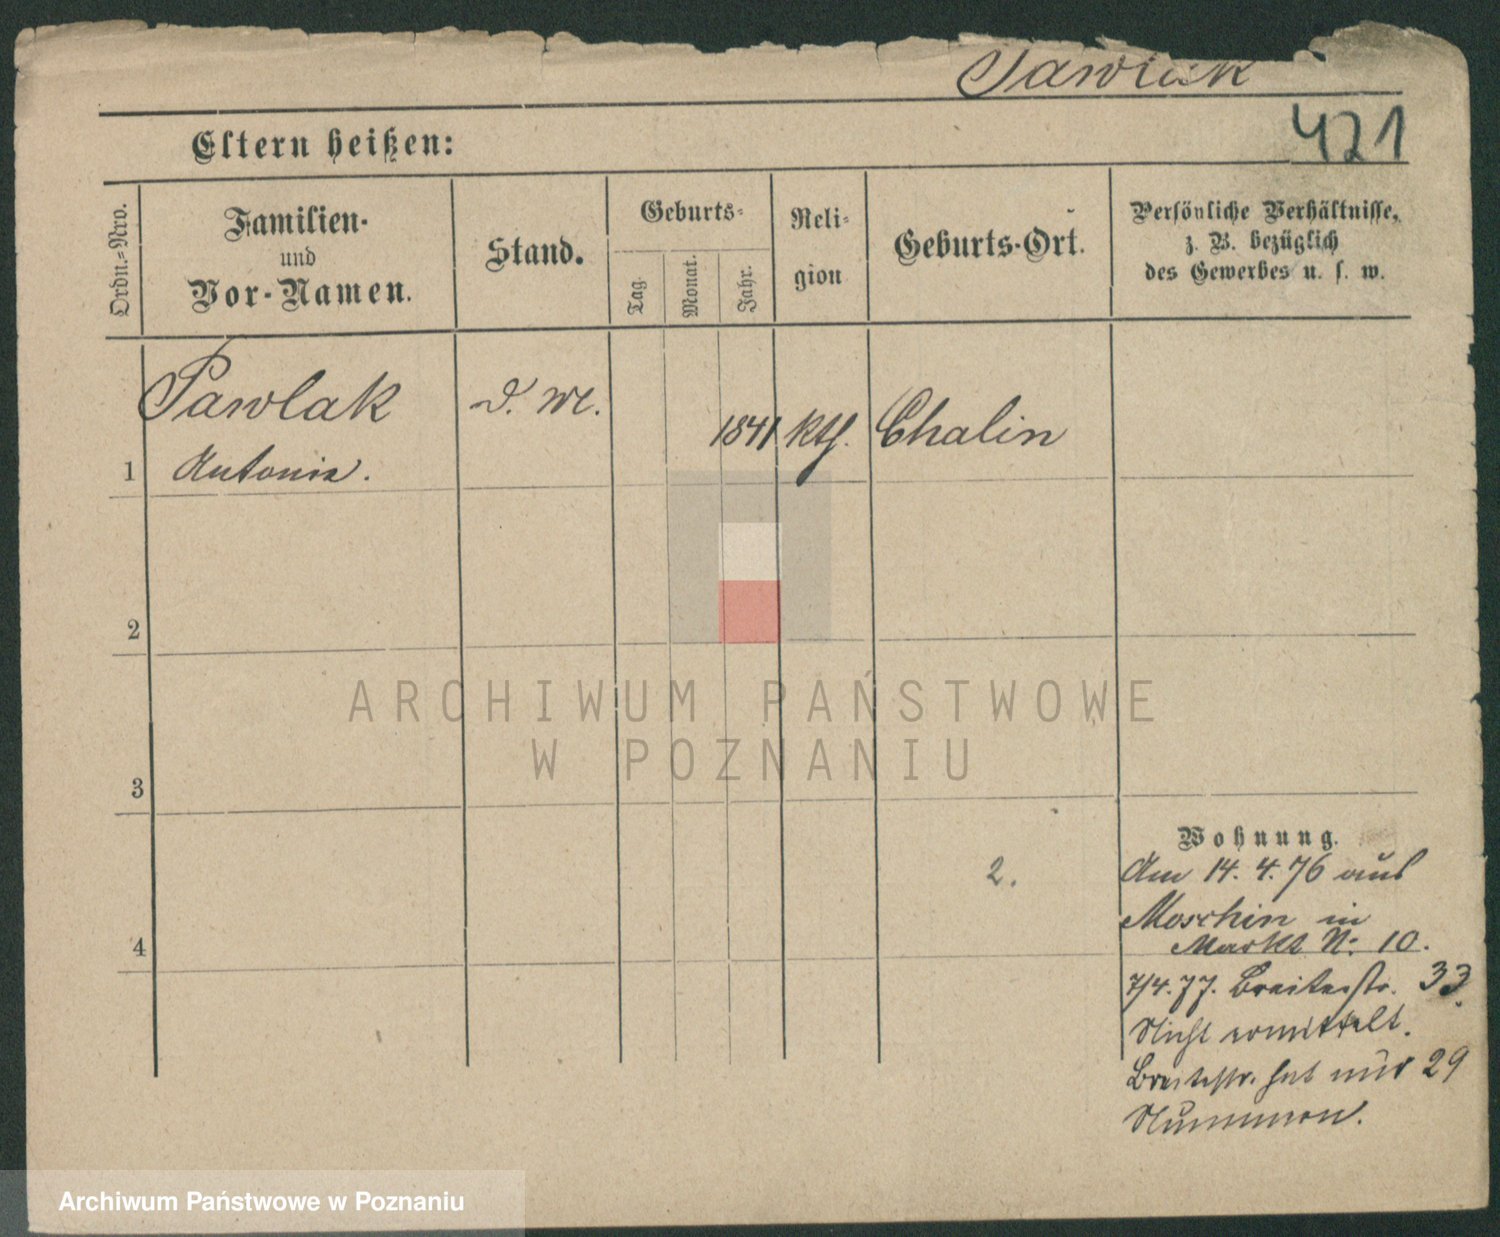 Pawlak
421
Eltern heißen:
Ordn.-Nro.
Familien-
und
Vor-Namen.
Stand.
Geburts-
Tag.
Monat.
Jahr.
Reli-
gion
Geburts-Ort.
Persönliche Verhältnisse,
z. B. bezüglich
des Gewerbes u. s. w.
Pawlak
Antonia.
1
1841
kth.
Chalin
2
3
4
2.
Wohnung.
Am 14. 4. 76 aus
Moschin in
Markt N: 10.
7/4. 77. Breitestr. 33.
Nicht ermittelt.
Breitestr. hat nur 29
Nummern.
ARCHIWUM PAŃSTWOWE
W POZNANIU
Archiwum Państwowe w Poznaniu